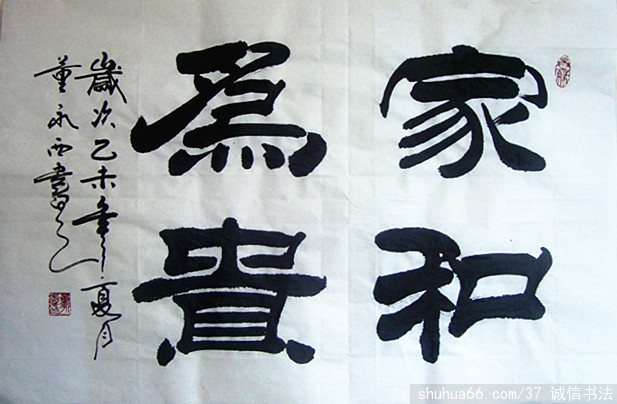 家和
為貴
歲次乙未年夏月
董永西書之
shuhua66.com/37 诚信书法